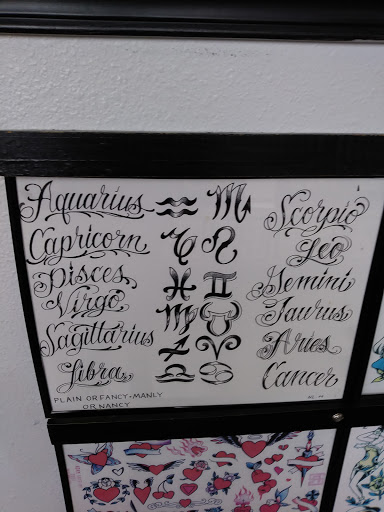 Aquarius
Capricorn
Pisces
Virgo
Sagittarius
Libra
Scorpio
Leo
Gemini
Taurus
Aries
Cancer
PLAIN OR FANCY • MANLY
OR NANCY